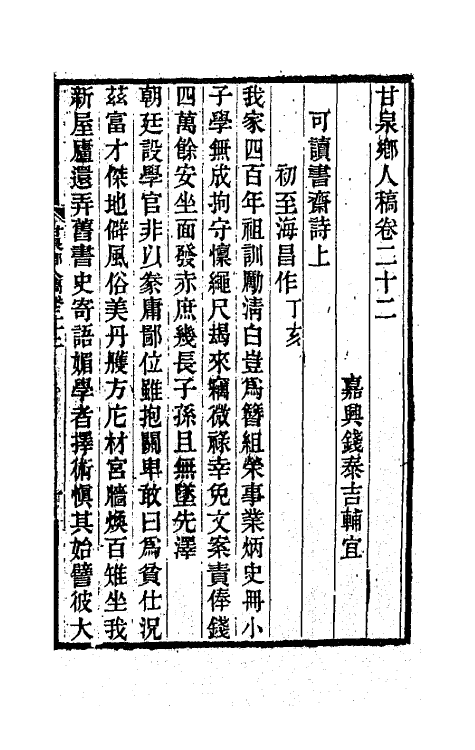 甘泉鄉人稿卷二十二
嘉興錢泰吉輔宜
可讀書齋詩上
初至海昌作丁亥
我家四百年祖訓勵清白豈爲簪組榮事業炳史冊小
子學無成拘守懷繩尺朅來竊微祿幸免文案責俸錢
四萬餘安坐面發赤庶幾長子孫且無墜先澤
朝廷設學官非以豢庸鄙位雖抱關卑敢曰爲貧仕況
茲富才傑地僻風俗美丹雘方庀材宮牆煥百雉坐我
新屋廬還弄舊書史寄語媚學者擇術愼其始譬彼大